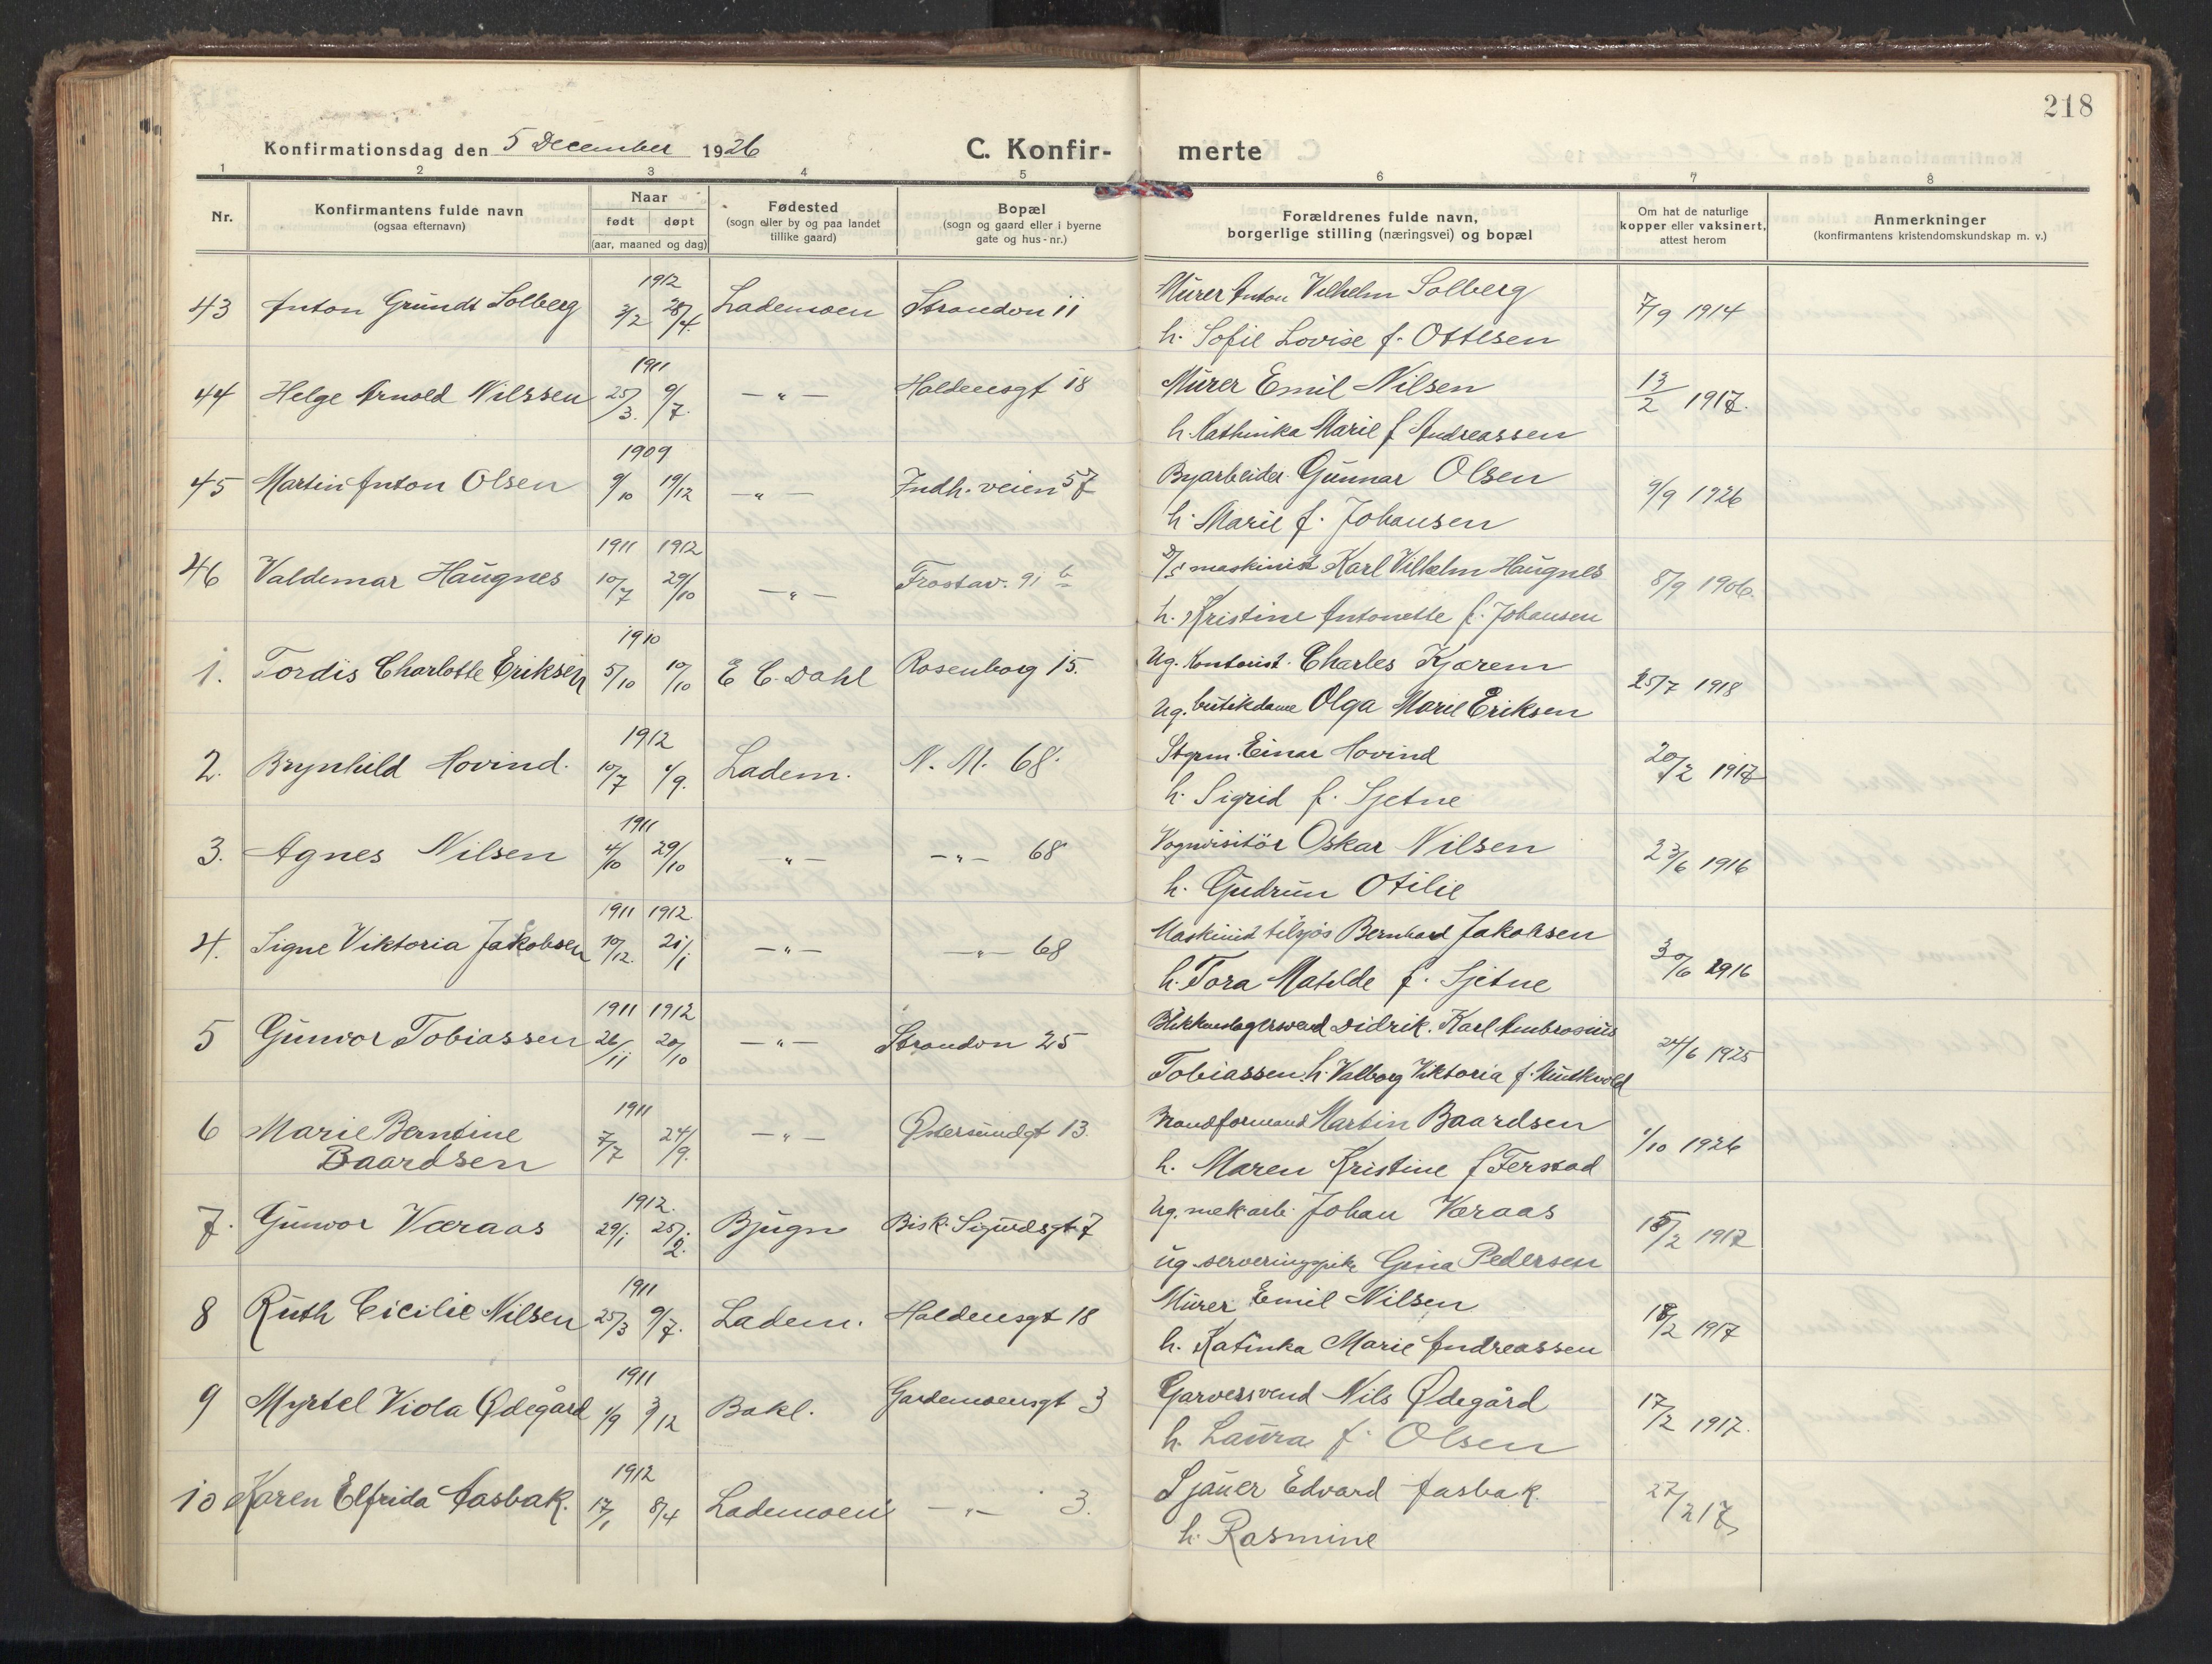 218
Konfirmationsdag den 5 December 1926 C. Konfir- merte
1 2 3 4 5 6 7 8
Nr. Konfirmantens fulde navn (ogsaa efternavn) Naar født døpt (aar, maaned og dag) Fødested (sogn eller by og paa landet tillike gaard) Bopæl (sogn og gaard eller i byerne gate og hus-nr.) Forældrenes fulde navn, borgerlige stilling (næringsvei) og bopæl Om hat de naturlige kopper eller vaksinert, attest herom Anmerkninger (konfirmantens kristendomskundskap m. v.)
1912
43 Anton Grundt Solberg 3/2 28/4. Lademoen Strandvn 11 Murer Anton Vilhelm Solberg 7/9 1914
h. Sofie Lovise f. Ottesen
1911
44 Helge Arnold Nilssen 25/3. 9/7. —"— Haldensgt 18 Murer Emil Nilsen 13/2 1917.
h. Kathinka Marie f Andreassen
1909
45 Martin Anton Olsen 9/10 19/12 —"— Indh. veien 57 Byarbeider Gunnar Olsen 9/9 1926
h. Marie f. Johansen
1911 1912
46 Valdemar Haugnes 10/7 29/10 —"— Frostav. 91 b D/S maskinist Karl Vilhelm Haugnes 8/9 1906.
h. Kristine Antonette f. Johansen
1910
1. Tordis Charlotte Eriksen 5/10 10/10 E C. Dahl Rosenborg 15. Ug. Kontorist. Charles Kjærem 25/7 1918
Ug. butikdame Olga Marie Eriksen
1912
2. Brynhild Hovind. 10/7 1/9. Ladem. N. M. 68. Stgrm. Einar Hovind 20/2 1917
h. Sigrid f. Sjetne
1911
3. Agnes Nilsen 4/10 29/10 —"— —"— 68 Vognvisitör Oskar Nilsen 23/6 1916
h. Gudrun Otilie
1911 1912.
4. Signe Viktoria Jakobsen 10/12. 21/1 —"— —"— 68 Maskinist tilsjös Bernhard Jakobsen 30/6 1916
h. Tora Matilde f. Sjetne
1911 1912
5 Gunvor Tobiassen 26/11 20/10 —"— Strandvn 25 Blikkenslagersvend Didrik. Karl Ambrosius 24/6 1925
Tobiassen. h. Valborg Viktoria f.
1911
6 Marie Berntine 7/7 24/9. —"— Østersundgt 13. Brandformand Martin Baardsen 1/10 1926
Baardsen h. Maren Kristine f Ferstad
1912.
7. Gunvor Væraas 29/1 25/2. Bjugn Bisk. Sigurdsgt. 7 Ug. mek arb. Johan Væraas 15/2 1917
ug. serveringspike Gina Pedersen
1911
8 Ruth Cicilie Nilsen 25/3 9/7. Ladem. Haldensgt 18 Murer Emil Nilsen 18/2 1917
h. Katinka Marie Andreassen
1911
9 Myrtel Viola Ødegård 1/9 3/12 Bakl. Gardemoensgt 3 Garversvend Nils Ødegård 17/2 1917.
h. Laura f. Olsen
1912
10 Karen Elfrida Aasbak. 17/1 8/4 Lademoen —"— 3. Sjauer Edvard Aasbak. 27/2 17
h. Rasmine